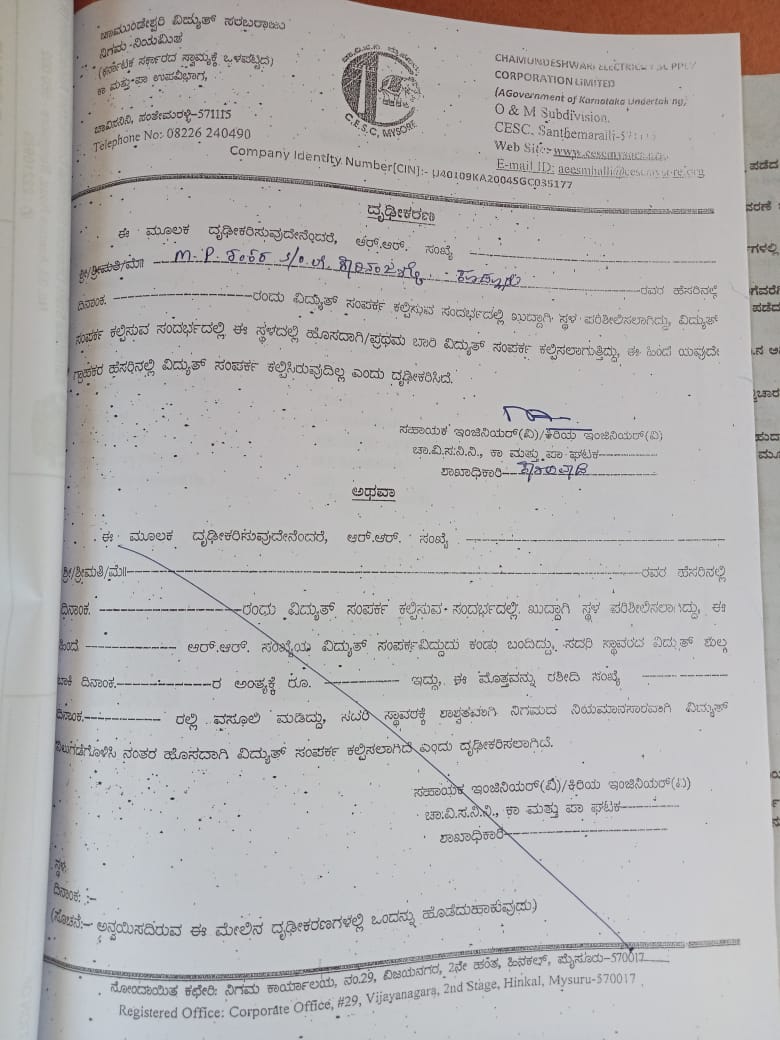 ಚಾಮುಂಡೇಶ್ವರಿ ವಿದ್ಯುತ್ ಸರಬರಾಜು
ನಿಗಮ ನಿಯಮಿತ
(ಕರ್ನಾಟಕ ಸರ್ಕಾರದ ಸ್ವಾಮ್ಯಕ್ಕೆ ಒಳಪಟ್ಟಿದೆ)
ಕಾ ಮತ್ತು ಪಾ ಉಪವಿಭಾಗ,
ಚಾವಿಸನಿನಿ, ಸಂತೇಮರಳ್ಳಿ-571115
Telephone No: 08226 240490
C.E.S.C, MYSORE
CHAMUNDESHWARI ELECTRICITY SUPPLY
CORPORATION LIMITED
(AGovernment of Karnataka Undertaking)
O & M Subdivision,
CESC, Santhemaralli-571115
Web Site:-
E-mail ID:
Company Identity Number[CIN]:- U40109KA2004SGC035177
ದೃಢೀಕರಣ
ಈ ಮೂಲಕ ದೃಢೀಕರಿಸುವುದೇನೆಂದರೆ, ಆರ್.ಆರ್. ಸಂಖ್ಯೆ
ಶ್ರೀ/ಶ್ರೀಮತಿ/ಮೆ॥ M.P. ಶಂಕರ S/o ರವರ ಹೆಸರಿನಲ್ಲಿ
ದಿನಾಂಕ. ರಂದು ವಿದ್ಯುತ್ ಸಂಪರ್ಕ ಕಲ್ಪಿಸುವ ಸಂದರ್ಭದಲ್ಲಿ ಖುದ್ದಾಗಿ ಸ್ಥಳ ಪರಿಶೀಲಿಸಲಾಗಿದ್ದು, ವಿದ್ಯುತ್
ಸಂಪರ್ಕ ಕಲ್ಪಿಸುವ ಸಂದರ್ಭದಲ್ಲಿ ಈ ಸ್ಥಳದಲ್ಲಿ ಹೊಸದಾಗಿ/ಪ್ರಥಮ ಬಾರಿ ವಿದ್ಯುತ್ ಸಂಪರ್ಕ ಕಲ್ಪಿಸಲಾಗುತ್ತಿದ್ದು, ಈ ಹಿಂದೆ ಯಾವುದೇ
ಗ್ರಾಹಕರ ಹೆಸರಿನಲ್ಲಿ ವಿದ್ಯುತ್ ಸಂಪರ್ಕ ಕಲ್ಪಿಸಿರುವುದಿಲ್ಲ ಎಂದು ದೃಢೀಕರಿಸಿದೆ.
ಸಹಾಯಕ ಇಂಜಿನಿಯರ್(ವಿ)/ಕಿರಿಯ ಇಂಜಿನಿಯರ್(ವಿ)
ಚಾ.ವಿ.ಸ.ನಿ.ನಿ., ಕಾ ಮತ್ತು ಪಾ ಘಟಕ
ಶಾಖಾಧಿಕಾರಿ
ಅಥವಾ
ಈ ಮೂಲಕ ದೃಢೀಕರಿಸುವುದೇನೆಂದರೆ, ಆರ್.ಆರ್. ಸಂಖ್ಯೆ
ಶ್ರೀ/ಶ್ರೀಮತಿ/ಮೆ॥ ರವರ ಹೆಸರಿನಲ್ಲಿ
ದಿನಾಂಕ. ರಂದು ವಿದ್ಯುತ್ ಸಂಪರ್ಕ ಕಲ್ಪಿಸುವ ಸಂದರ್ಭದಲ್ಲಿ ಖುದ್ದಾಗಿ ಸ್ಥಳ ಪರಿಶೀಲಿಸಲಾಗಿದ್ದು, ಈ
ಹಿಂದೆ ಆರ್.ಆರ್. ಸಂಖ್ಯೆಯ ವಿದ್ಯುತ್ ಸಂಪರ್ಕವಿದ್ದುದು ಕಂಡು ಬಂದಿದ್ದು, ಸದರಿ ಸ್ಥಾವರದ ವಿದ್ಯುತ್ ಶುಲ್ಕ
ಬಾಕಿ ದಿನಾಂಕ. ರ ಅಂತ್ಯಕ್ಕೆ ರೂ. ಇದ್ದು, ಈ ಮೊತ್ತವನ್ನು ರಶೀದಿ ಸಂಖ್ಯೆ
ದಿನಾಂಕ. ರಲ್ಲಿ ವಸೂಲಿ ಮಾಡಿದ್ದು, ಸದರಿ ಸ್ಥಾವರಕ್ಕೆ ಶಾಶ್ವತವಾಗಿ ನಿಗಮದ ನಿಯಮಾನುಸಾರವಾಗಿ ವಿದ್ಯುತ್
ನಿಲುಗಡೆಗೊಳಿಸಿ ನಂತರ ಹೊಸದಾಗಿ ವಿದ್ಯುತ್ ಸಂಪರ್ಕ ಕಲ್ಪಿಸಲಾಗಿದೆ ಎಂದು ದೃಢೀಕರಿಸಲಾಗಿದೆ.
ಸಹಾಯಕ ಇಂಜಿನಿಯರ್(ವಿ)/ಕಿರಿಯ ಇಂಜಿನಿಯರ್(ವಿ)
ಚಾ.ವಿ.ಸ.ನಿ.ನಿ., ಕಾ ಮತ್ತು ಪಾ ಘಟಕ
ಶಾಖಾಧಿಕಾರಿ
ಸ್ಥಳ:
ದಿನಾಂಕ: :-
(ಸೂಚನೆ:- ಅನ್ವಯಿಸದಿರುವ ಈ ಮೇಲಿನ ದೃಢೀಕರಣಗಳಲ್ಲಿ ಒಂದನ್ನು ಹೊಡೆದುಹಾಕುವುದು)
ನೋಂದಾಯಿತ ಕಛೇರಿ: ನಿಗಮ ಕಾರ್ಯಾಲಯ, ನಂ.29, ವಿಜಯನಗರ, 2ನೇ ಹಂತ, ಹಿನಕಲ್, ಮೈಸೂರು-570017
Registered Office: Corporate Office, #29, Vijayanagara, 2nd Stage, Hinkal, Mysuru-570017